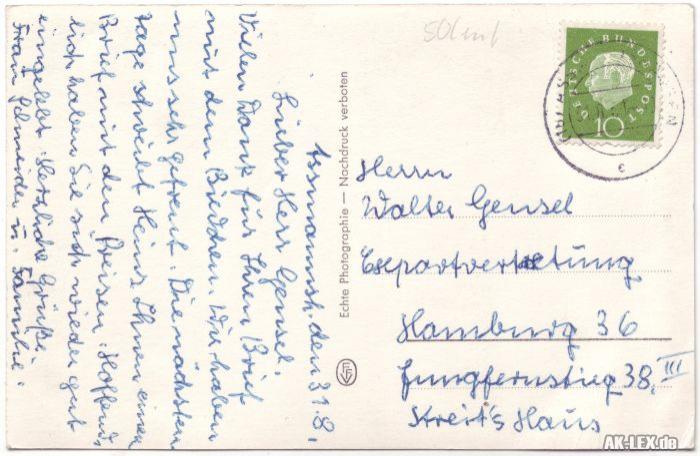 50 Pf
Assmannsh. den 31.8.
Lieber Herr Gensel.
Vielen Dank für Ihren Brief
mit dem Bildchen. Wir haben
uns sehr gefreut. Die nächsten
Tage schreibt Heinz Ihnen einen
Brief mit den Preisen. Hoffend
lich haben Sie sich wieder gut
eingelebt. Herzliche Grüße
Fram u. Familie.
Echte Photographie — Nachdruck verboten
DEUTSCHE BUNDESPOST
10
c
Herrn
Walter Gensel
Exportvertretung
Hamburg 36
Jungfernstieg 38, III
Kreit's Haus
AK-LEX.de